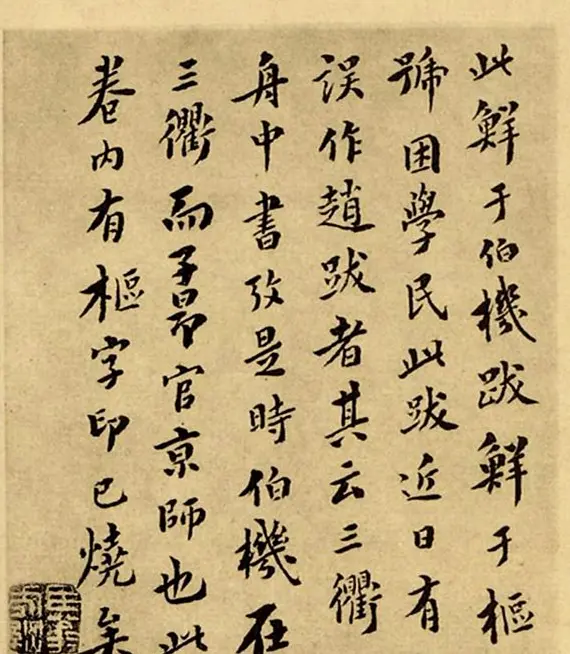 此鮮于伯機跋鮮于樞
號困學民此跋近日有
誤作趙跋者其云三衢
舟中書攷是時伯機在
三衢而子昂官京師也此
卷内有樞字印已燒矣